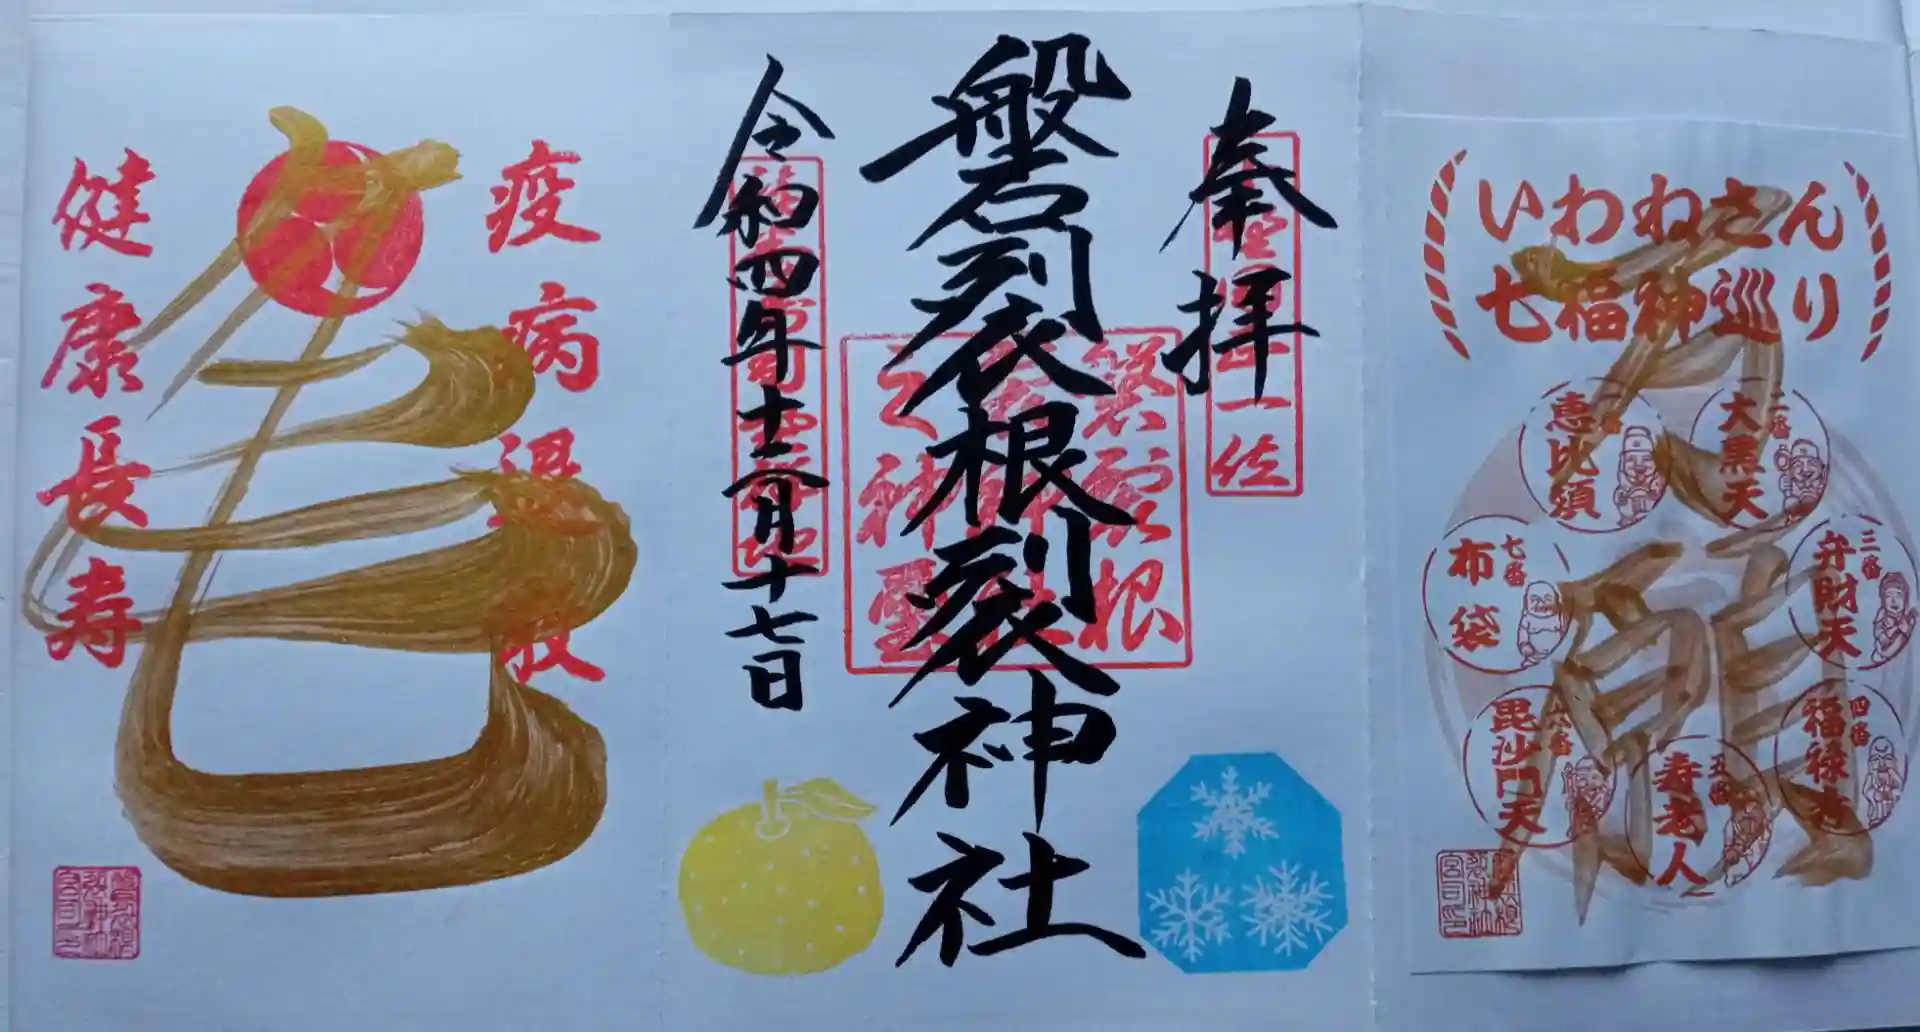 いわねさん
七福神巡り
一番
恵比須
二番
大黒天
三番
弁財天
四番
福禄寿
五番
寿老人
六番
毘沙門天
七番
布袋
奉拝
磐裂根裂神社
磐裂根
之神璽
令和四年十二月十七日
疫病退散
健康長寿